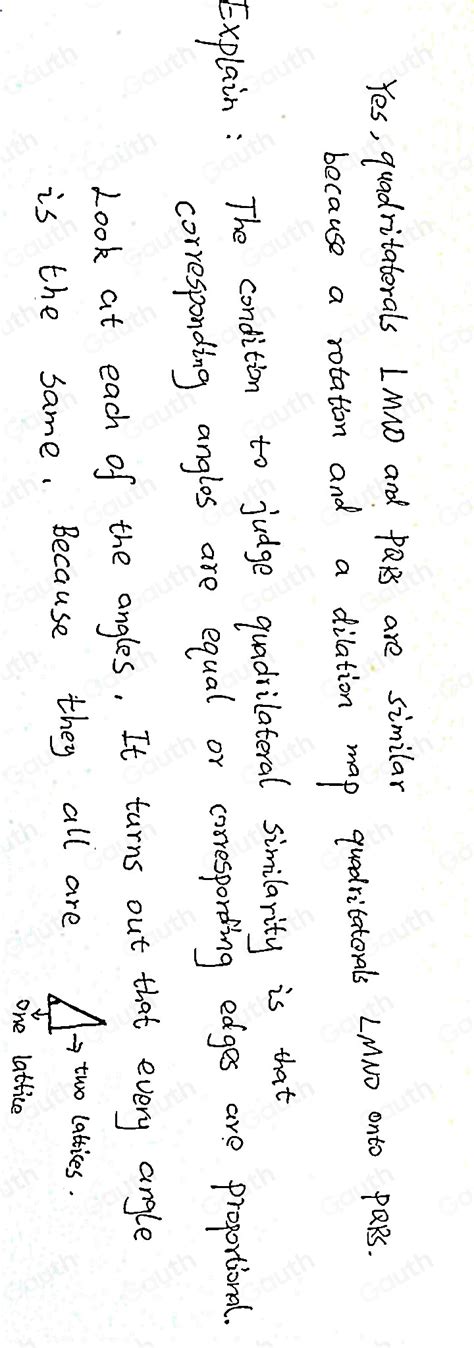 Yes, quadritaterals LMNO and PQRS are similar
because a rotation and a dilation map quadritaterals LMNO onto PQRS.
Explain : The condition to judge quadrilateral similarity is that
corresponding angles are equal or corresponding edges are proportional.
Look at each of the angles. It turns out that every angle
is the same. Because they all are
→ two lattices.
one lattice